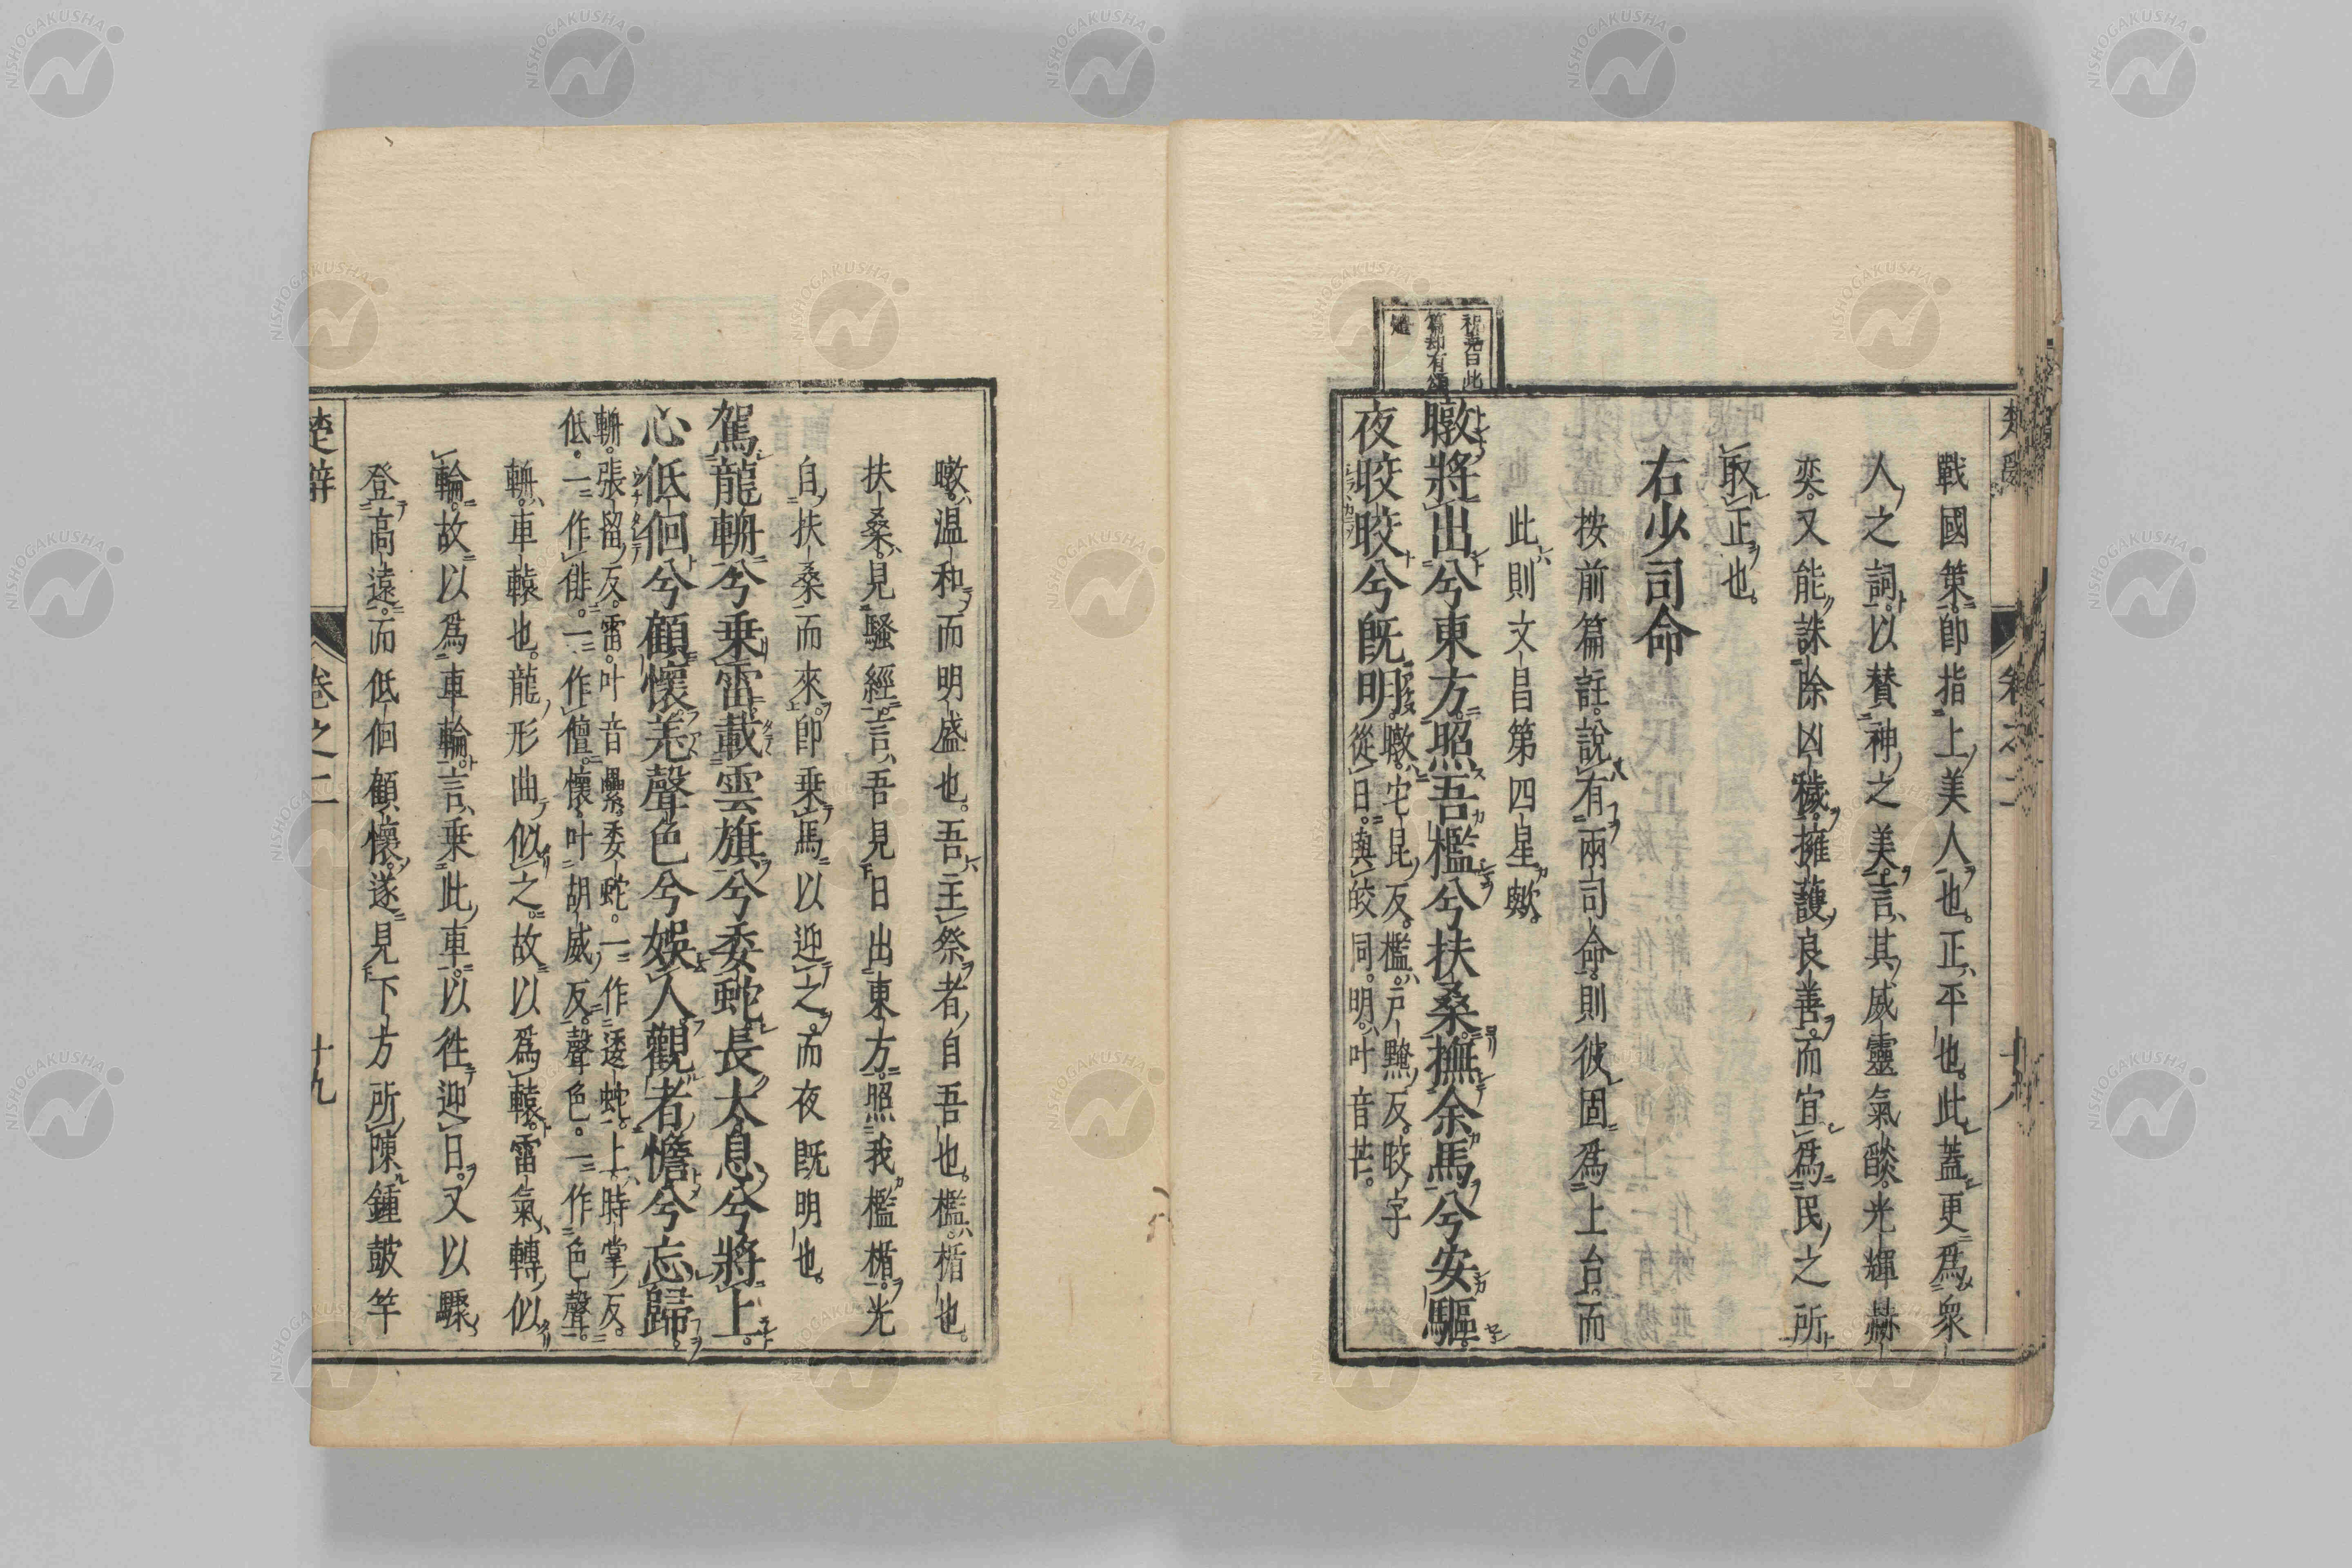 戰國策。卽指上美人也。正、平也。此蓋更爲衆
人之詞。以賛神之美。言、其威靈氣燄。光輝赫
奕。又能誅除凶穢。擁護良善。而宜爲民之所
取正也。
右少司命
按前篇註。說有兩司命。則彼固爲上台。而
此則文昌第四星歟。
祝堯曰此
篇却有頌
體
暾將出兮東方。照吾檻兮扶桑。撫余馬兮安驅。
夜晈晈兮旣明。
暾。它昆反。檻。戸黤反。晈字
從日。與皎同。明。叶音芒。
暾、温和而明盛也。吾、主祭者自吾也。檻、楯也。
扶桑。見騷經。言、吾見日出東方。照我檻楯。光
自扶桑而來。卽乗馬以迎之。而夜既明也。
駕龍輈兮乗雷。載雲旗兮委蛇。長太息兮將上。
心低佪兮顧懷。羌聲色兮娛人。觀者憺兮忘歸。
輈。張留反。雷。叶音纍。委蛇。一作逶蛇。上、時掌反。
低。一作俳。一作儃。懷。叶胡威反。聲色。一作色聲。
輈。車轅也。龍形曲似之。故以爲轅。雷氣、轉似
輪。故以爲車輪。言、乗此車。以徃迎日。又以驟
登高遠。而低佪顧懷。遂見下方所陳鍾皷竽
楚辭 卷之二 十九
NISHOGAKUSHA